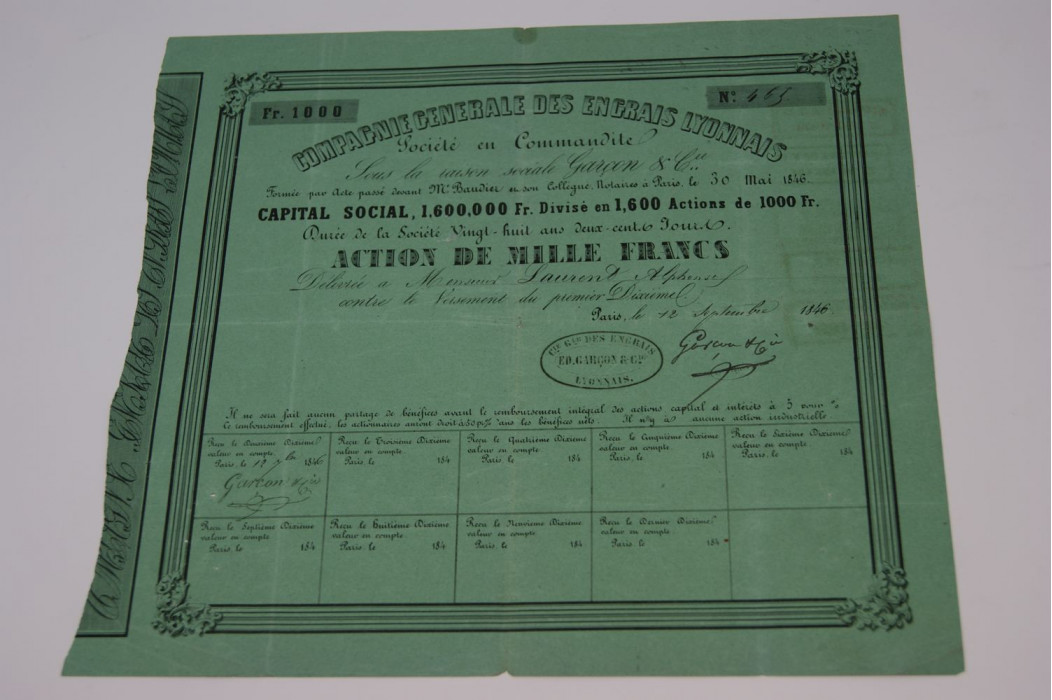 Fr. 1000
Nº 465
COMPAGNIE GENERALE DES ENGRAIS LYONNAIS
Société en Commandite
Sous la raison sociale Garçon & Cie
Formée par Acte passé devant Mr Baudier et son Collègue, Notaires à Paris, le 30 Mai 1846.
CAPITAL SOCIAL, 1.600,000 Fr. Divisé en 1,600 Actions de 1000 Fr.
Durée de la Société Vingt-huit ans deux-cents Jours.
ACTION DE MILLE FRANCS
Délivrée à Monsieur Laurent Alphonse
contre le Versement du premier Dixième
Paris, le 12 Septembre 1846.
CIE GLE DES ENGRAIS
ED. GARÇON & CIE
LYONNAIS.
Garçon & Cie
Il ne sera fait aucun partage de bénéfices avant le remboursement intégral des actions capital et intérêts à 5 pour %
Ce remboursement effectué, les actionnaires auront droit à 50 p% dans les bénéfices nets. Il n'y a aucune action industrielle
Reçu le Deuxième Dixième
valeur en compte.
Paris, le 12 7bre 1846
Garçon & Cie
Reçu le Troisième Dixième
valeur en compte.
Paris le 184
Reçu le Quatrième Dixième
valeur en compte
Paris, le 184
Reçu le Cinquième Dixième
valeur en compte.
Paris, le 184
Reçu le Sixième Dixième
valeur en compte.
Paris, le 184
Reçu le Septième Dixième
valeur en compte
Paris, le 184
Reçu le Huitième Dixième
valeur en compte
Paris, le 184
Reçu le Neuvième Dixième
valeur en compte
Paris, le 184
Reçu le Dernier Dixième
valeur en compte
Paris, le 184